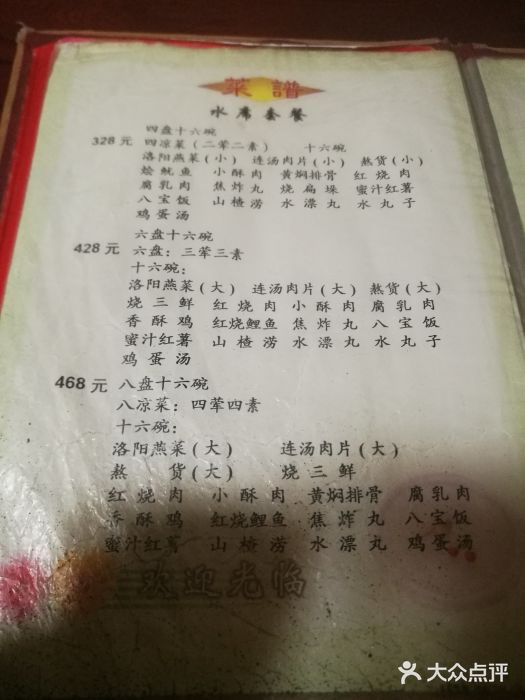 菜譜
水席套餐
四盘十六碗
328元 四凉菜(二荤二素) 十六碗
洛阳燕菜(小) 连汤肉片(小) 熬货(小)
烩鱿鱼 小酥肉 黄焖排骨 红烧肉
腐乳肉 焦炸丸 烧扁垛 蜜汁红薯
八宝饭 山楂涝 水漂丸 水丸子
鸡蛋汤
六盘十六碗
428元 六盘:三荤三素
十六碗:
洛阳燕菜(大) 连汤肉片(大) 熬货(大)
烧三鲜 红烧肉 小酥肉 腐乳肉
香酥鸡 红烧鲤鱼 焦炸丸 八宝饭
蜜汁红薯 山楂涝 水漂丸 水丸子
鸡蛋汤
468元 八盘十六碗
八凉菜:四荤四素
十六碗:
洛阳燕菜(大) 连汤肉片(大)
熬货(大) 烧三鲜
红烧肉 小酥肉 黄焖排骨 腐乳肉
香酥鸡 红烧鲤鱼 焦炸丸 八宝饭
蜜汁红薯 山楂涝 水漂丸 鸡蛋汤
欢迎光临
大众点评